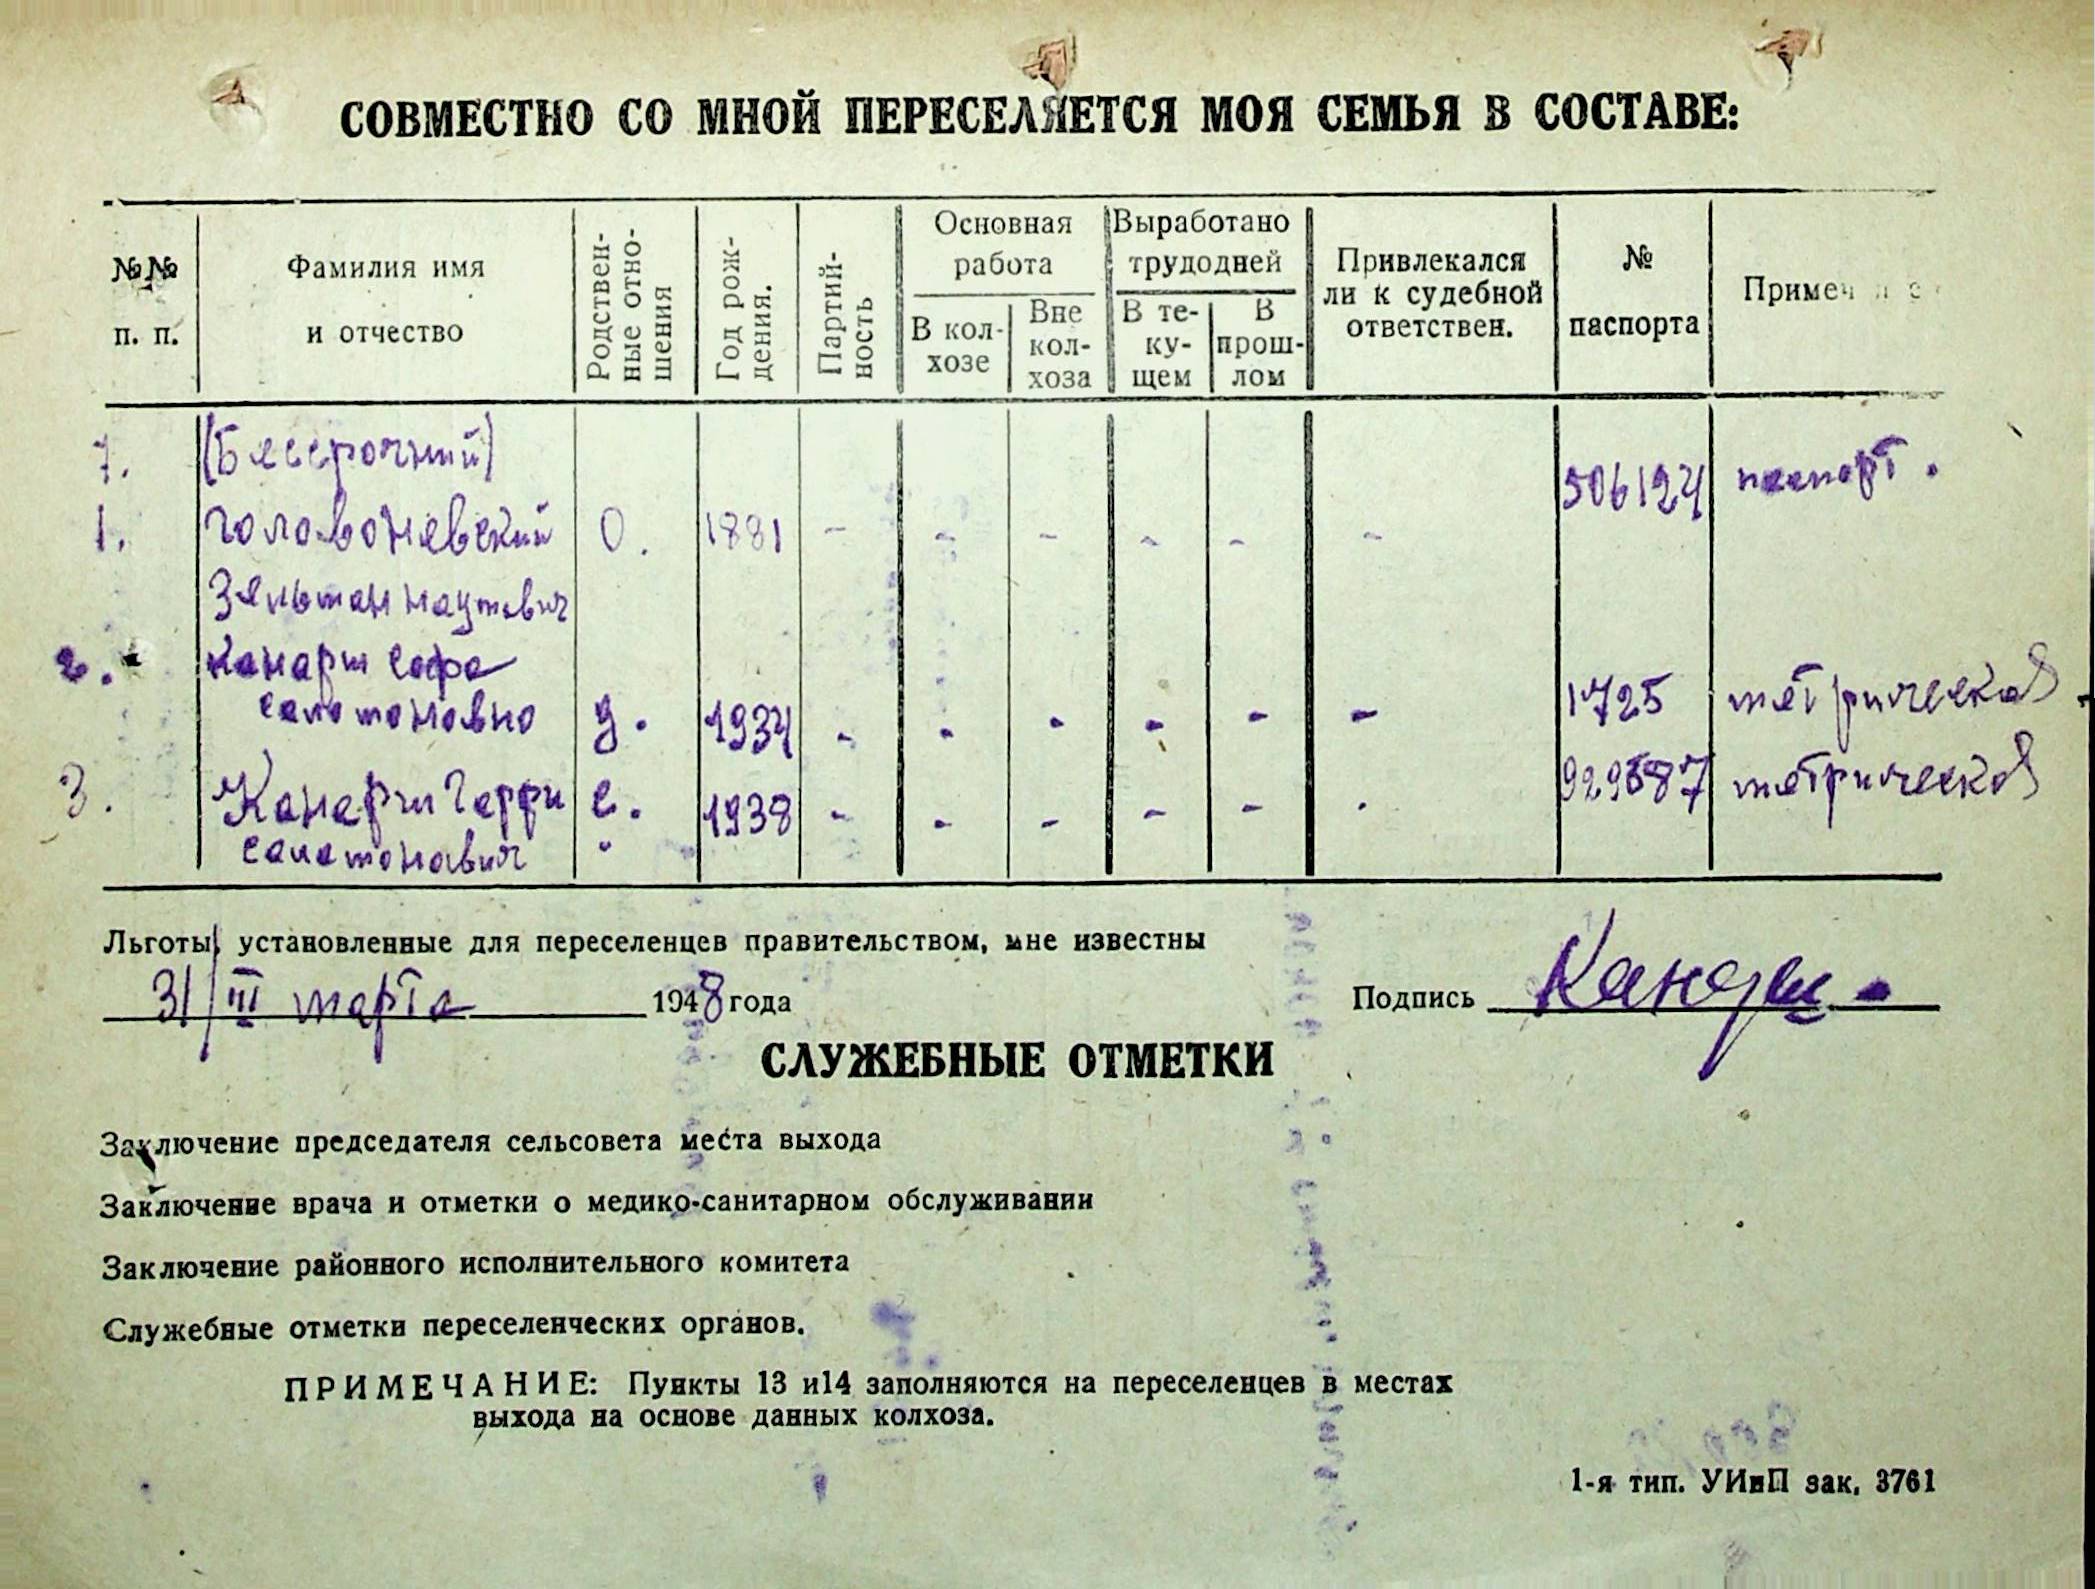 СОВМЕСТНО СО МНОЙ ПЕРЕСЕЛЯЕТСЯ МОЯ СЕМЬЯ В СОСТАВЕ:
№№ п. п.
Фамилия имя и отчество
Родствен-ные отно-шения
Год рож-дения.
Партий-ность
Основная работа
В кол-хозе
Вне кол-хоза
Выработано трудодней
В те-ку-щем
В прош-лом
Привлекался ли к судебной ответствен.
№ паспорта
7. (Бессрочний) 506124 паспорт.
1. Головоневский О. 1881 - - - - - -
Зельман наумович
2. Канарш Софа
саломоновно д. 1934 - - - - - - 1725 метрическая
3. Канарш Гарри с. 1938 - - - - - - метрическая
саломонович
Льготы, установленные для переселенцев правительством, мне известны
31/III марта 1948 года
Подпись Канарш
СЛУЖЕБНЫЕ ОТМЕТКИ
Заключение председателя сельсовета места выхода
Заключение врача и отметки о медико-санитарном обслуживании
Заключение районного исполнительного комитета
Служебные отметки переселенческих органов.
ПРИМЕЧАНИЕ: Пункты 13 и14 заполняются на переселенцев в местах
выхода на основе данных колхоза.
1-я тип. УИиП зак, 3761